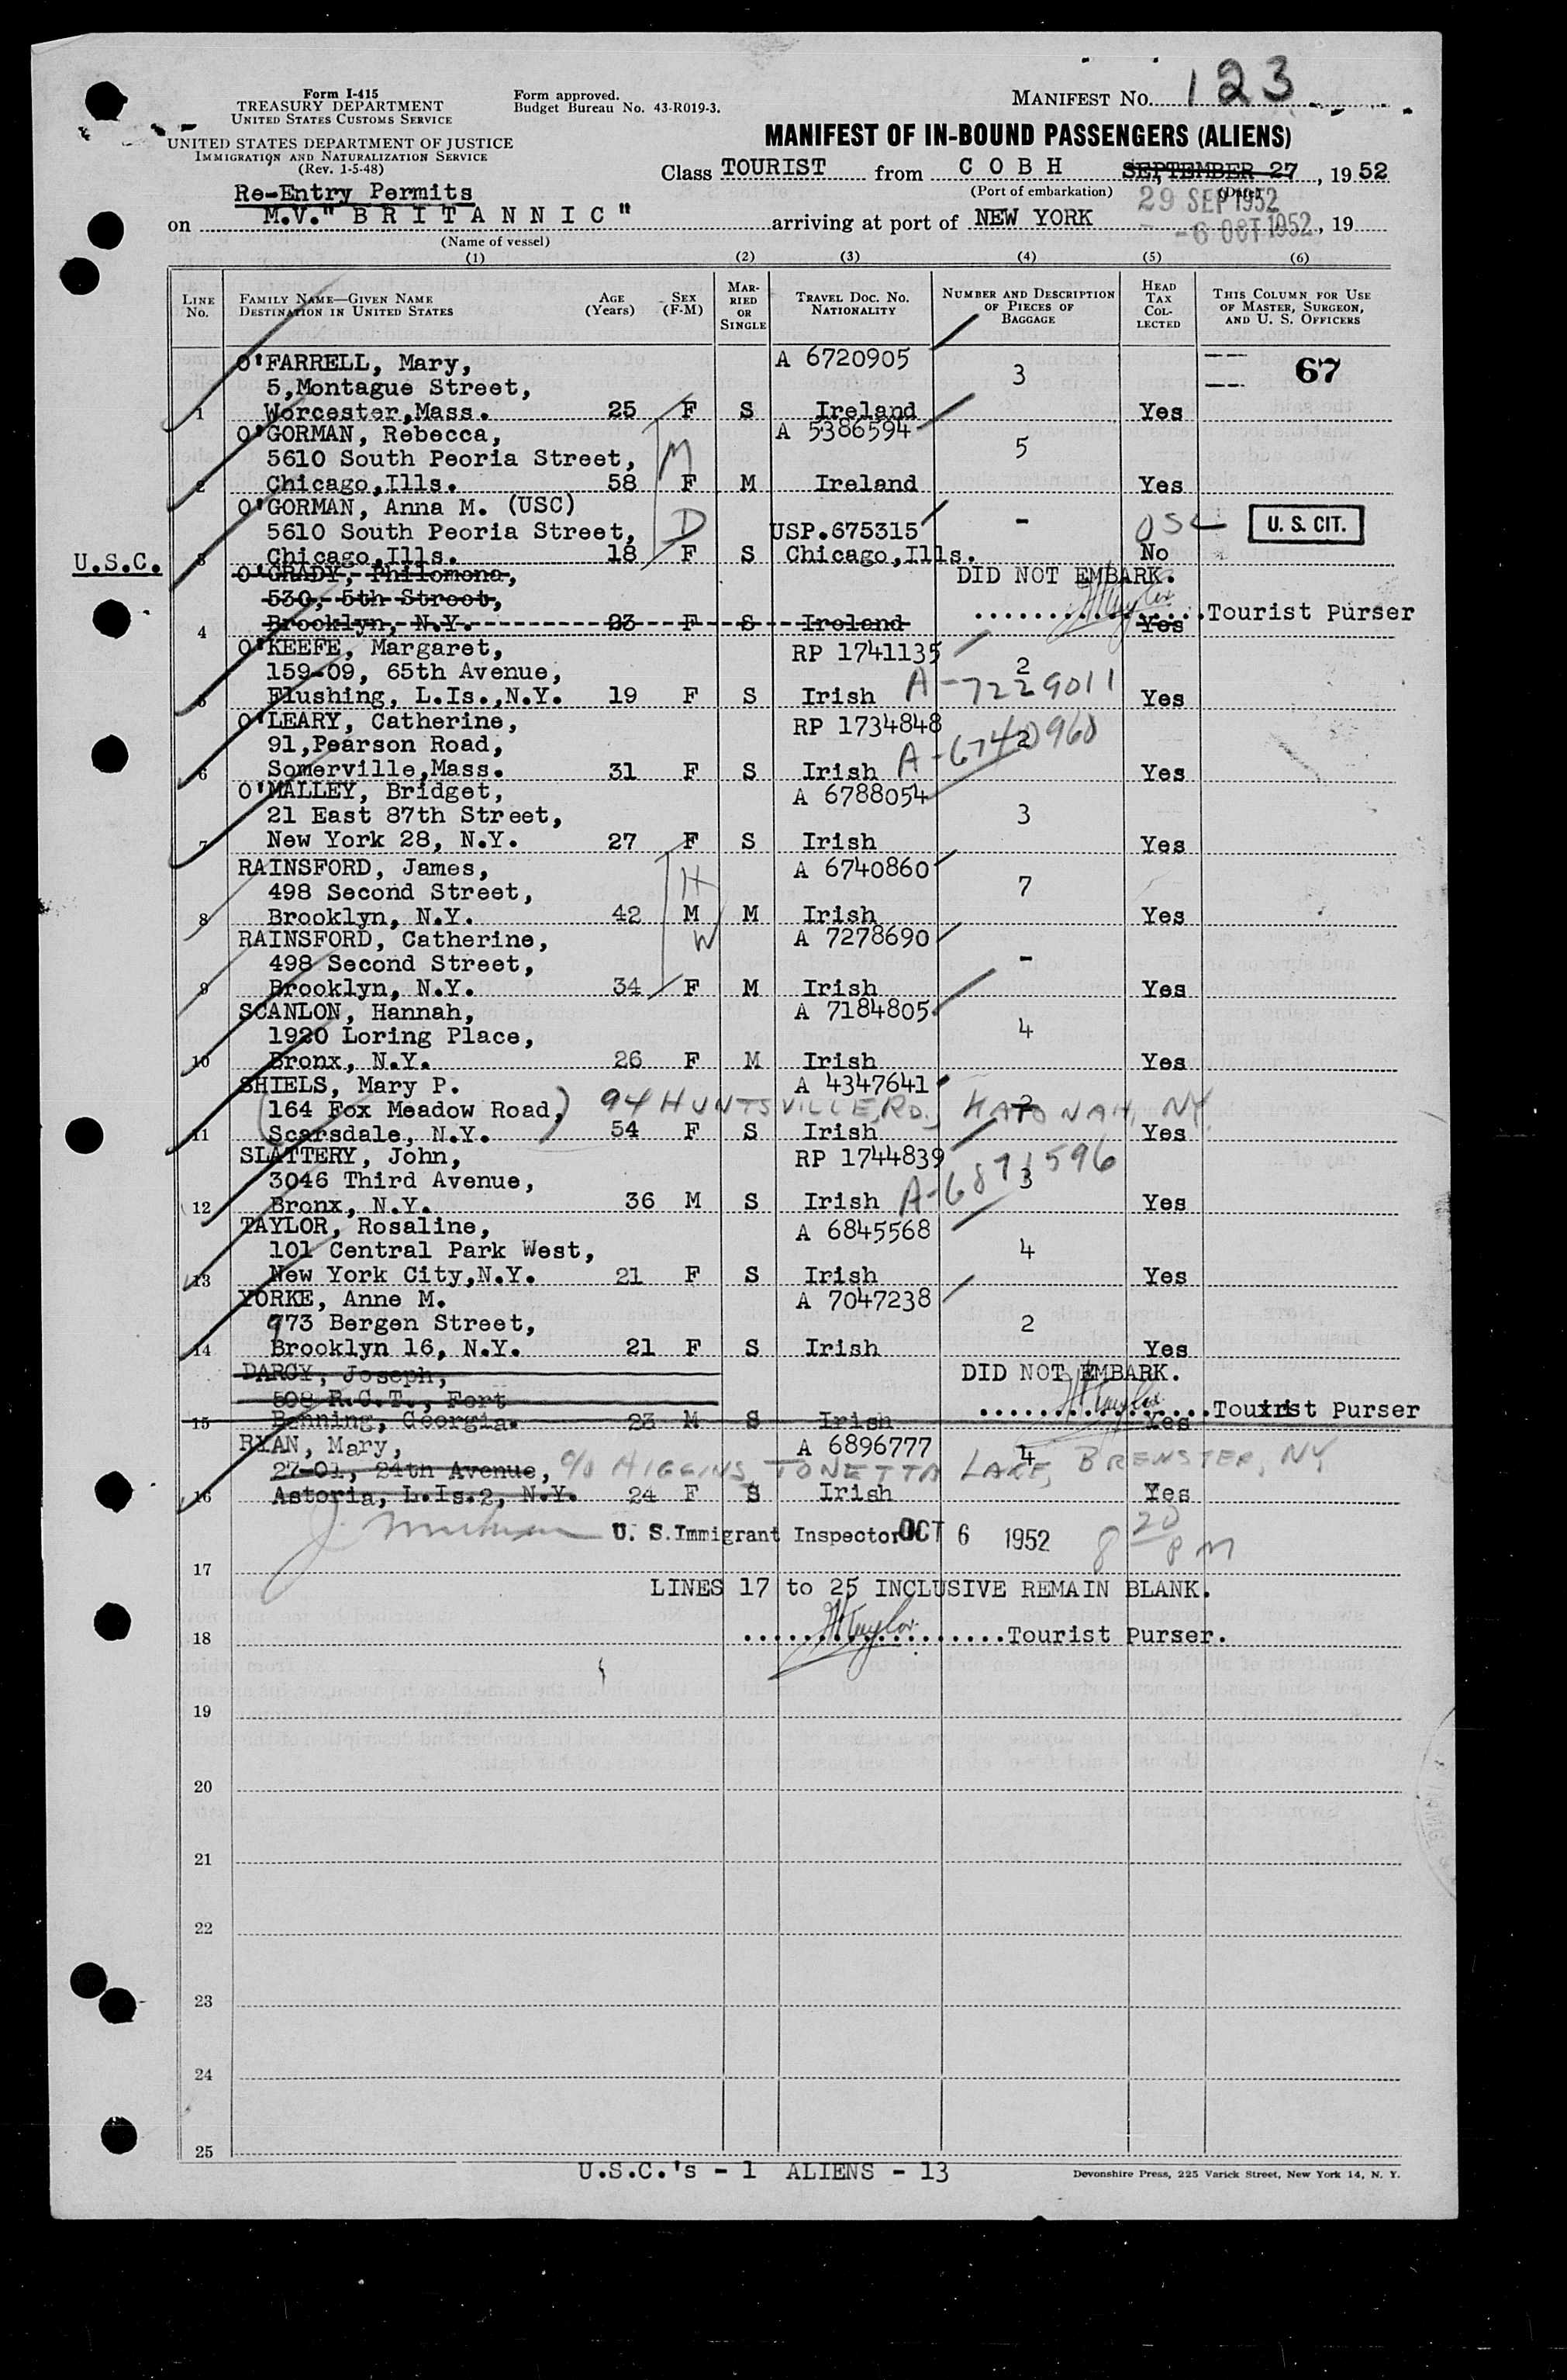 Form I-415
TREASURY DEPARTMENT
UNITED STATES CUSTOMS SERVICE
UNITED STATES DEPARTMENT OF JUSTICE
IMMIGRATION AND NATURALIZATION SERVICE
(Rev. 1-5-48)
Form approved.
Budget Bureau No. 43-R019-3.
MANIFEST NO. 123
MANIFEST OF IN-BOUND PASSENGERS (ALIENS)
Class TOURIST from C O B H SEPTEMBER 27, 1952
(Port of embarkation) (Date)
29 SEP 1952
Re-Entry Permits
on M.V." B R I T A N N I C" arriving at port of NEW YORK -6 OCT 1952, 19
(Name of vessel)
(1) (2) (3) (4) (5) (6)
LINE No. FAMILY NAME—GIVEN NAME DESTINATION IN UNITED STATES AGE (Years) SEX (F-M) MARRIED OR SINGLE TRAVEL DOC. NO. NATIONALITY NUMBER AND DESCRIPTION OF PIECES OF BAGGAGE HEAD TAX COLLECTED THIS COLUMN FOR USE OF MASTER, SURGEON, AND U. S. OFFICERS
O'FARRELL, Mary, A 6720905 67
5,Montague Street, 3
1 Worcester,Mass. 25 F S Ireland Yes
O'GORMAN, Rebecca, A 5386594
5610 South Peoria Street, M 5
2 Chicago,Ills. 58 F M Ireland Yes
O'GORMAN, Anna M. (USC)
5610 South Peoria Street, D USP.675315 - USC U. S. CIT.
U.S.C. 3 Chicago,Ills. 18 F S Chicago,Ills. No
O'GRADY, Philomena, DID NOT EMBARK.
530, 5th Street, Tourist Purser
4 Brooklyn, N.Y. 23 F S Ireland Yes
O'KEEFE, Margaret, RP 1741135
159-09, 65th Avenue, 2
5 Flushing, L.Is.,N.Y. 19 F S Irish A-7229011 Yes
O'LEARY, Catherine, RP 1734848
91,Pearson Road, 2
6 Somerville,Mass. 31 F S Irish A-6740960 Yes
O'MALLEY, Bridget, A 6788054
21 East 87th Street, 3
7 New York 28, N.Y. 27 F S Irish Yes
RAINSFORD, James, A 6740860
498 Second Street, H 7
8 Brooklyn, N.Y. 42 M M Irish Yes
RAINSFORD, Catherine, W A 7278690
498 Second Street, -
9 Brooklyn, N.Y. 34 F M Irish Yes
SCANLON, Hannah, A 7184805
1920 Loring Place, 4
10 Bronx, N.Y. 26 F M Irish Yes
SHIELS, Mary P. A 4347641
(164 Fox Meadow Road, 94 HUNTSVILLE RD., KATONAH, NY 2
11 Scarsdale, N.Y.) 54 F S Irish Yes
SLATTERY, John, RP 1744839
3046 Third Avenue, 3
12 Bronx, N.Y. 36 M S Irish A-6871596 Yes
TAYLOR, Rosaline, A 6845568
101 Central Park West, 4
13 New York City,N.Y. 21 F S Irish Yes
YORKE, Anne M. A 7047238
973 Bergen Street, 2
14 Brooklyn 16, N.Y. 21 F S Irish Yes
DARCY, Joseph, DID NOT EMBARK.
508 R.C.T., Fort Tourist Purser
15 Benning, Georgia. 23 M S Irish Yes
RYAN, Mary, A 6896777 4
27-01, 24th Avenue, c/o HIGGINS, TONETTA LAKE, BREWSTER, NY
16 Astoria, L.Is.2, N.Y. 24 F S Irish Yes
U. S. Immigrant Inspector OCT 6 1952 8 20 PM
17
LINES 17 to 25 INCLUSIVE REMAIN BLANK.
18 Tourist Purser.
19
20
21
22
23
24
25
U.S.C.'s - 1 ALIENS - 13
Devonshire Press, 225 Varick Street, New York 14, N. Y.